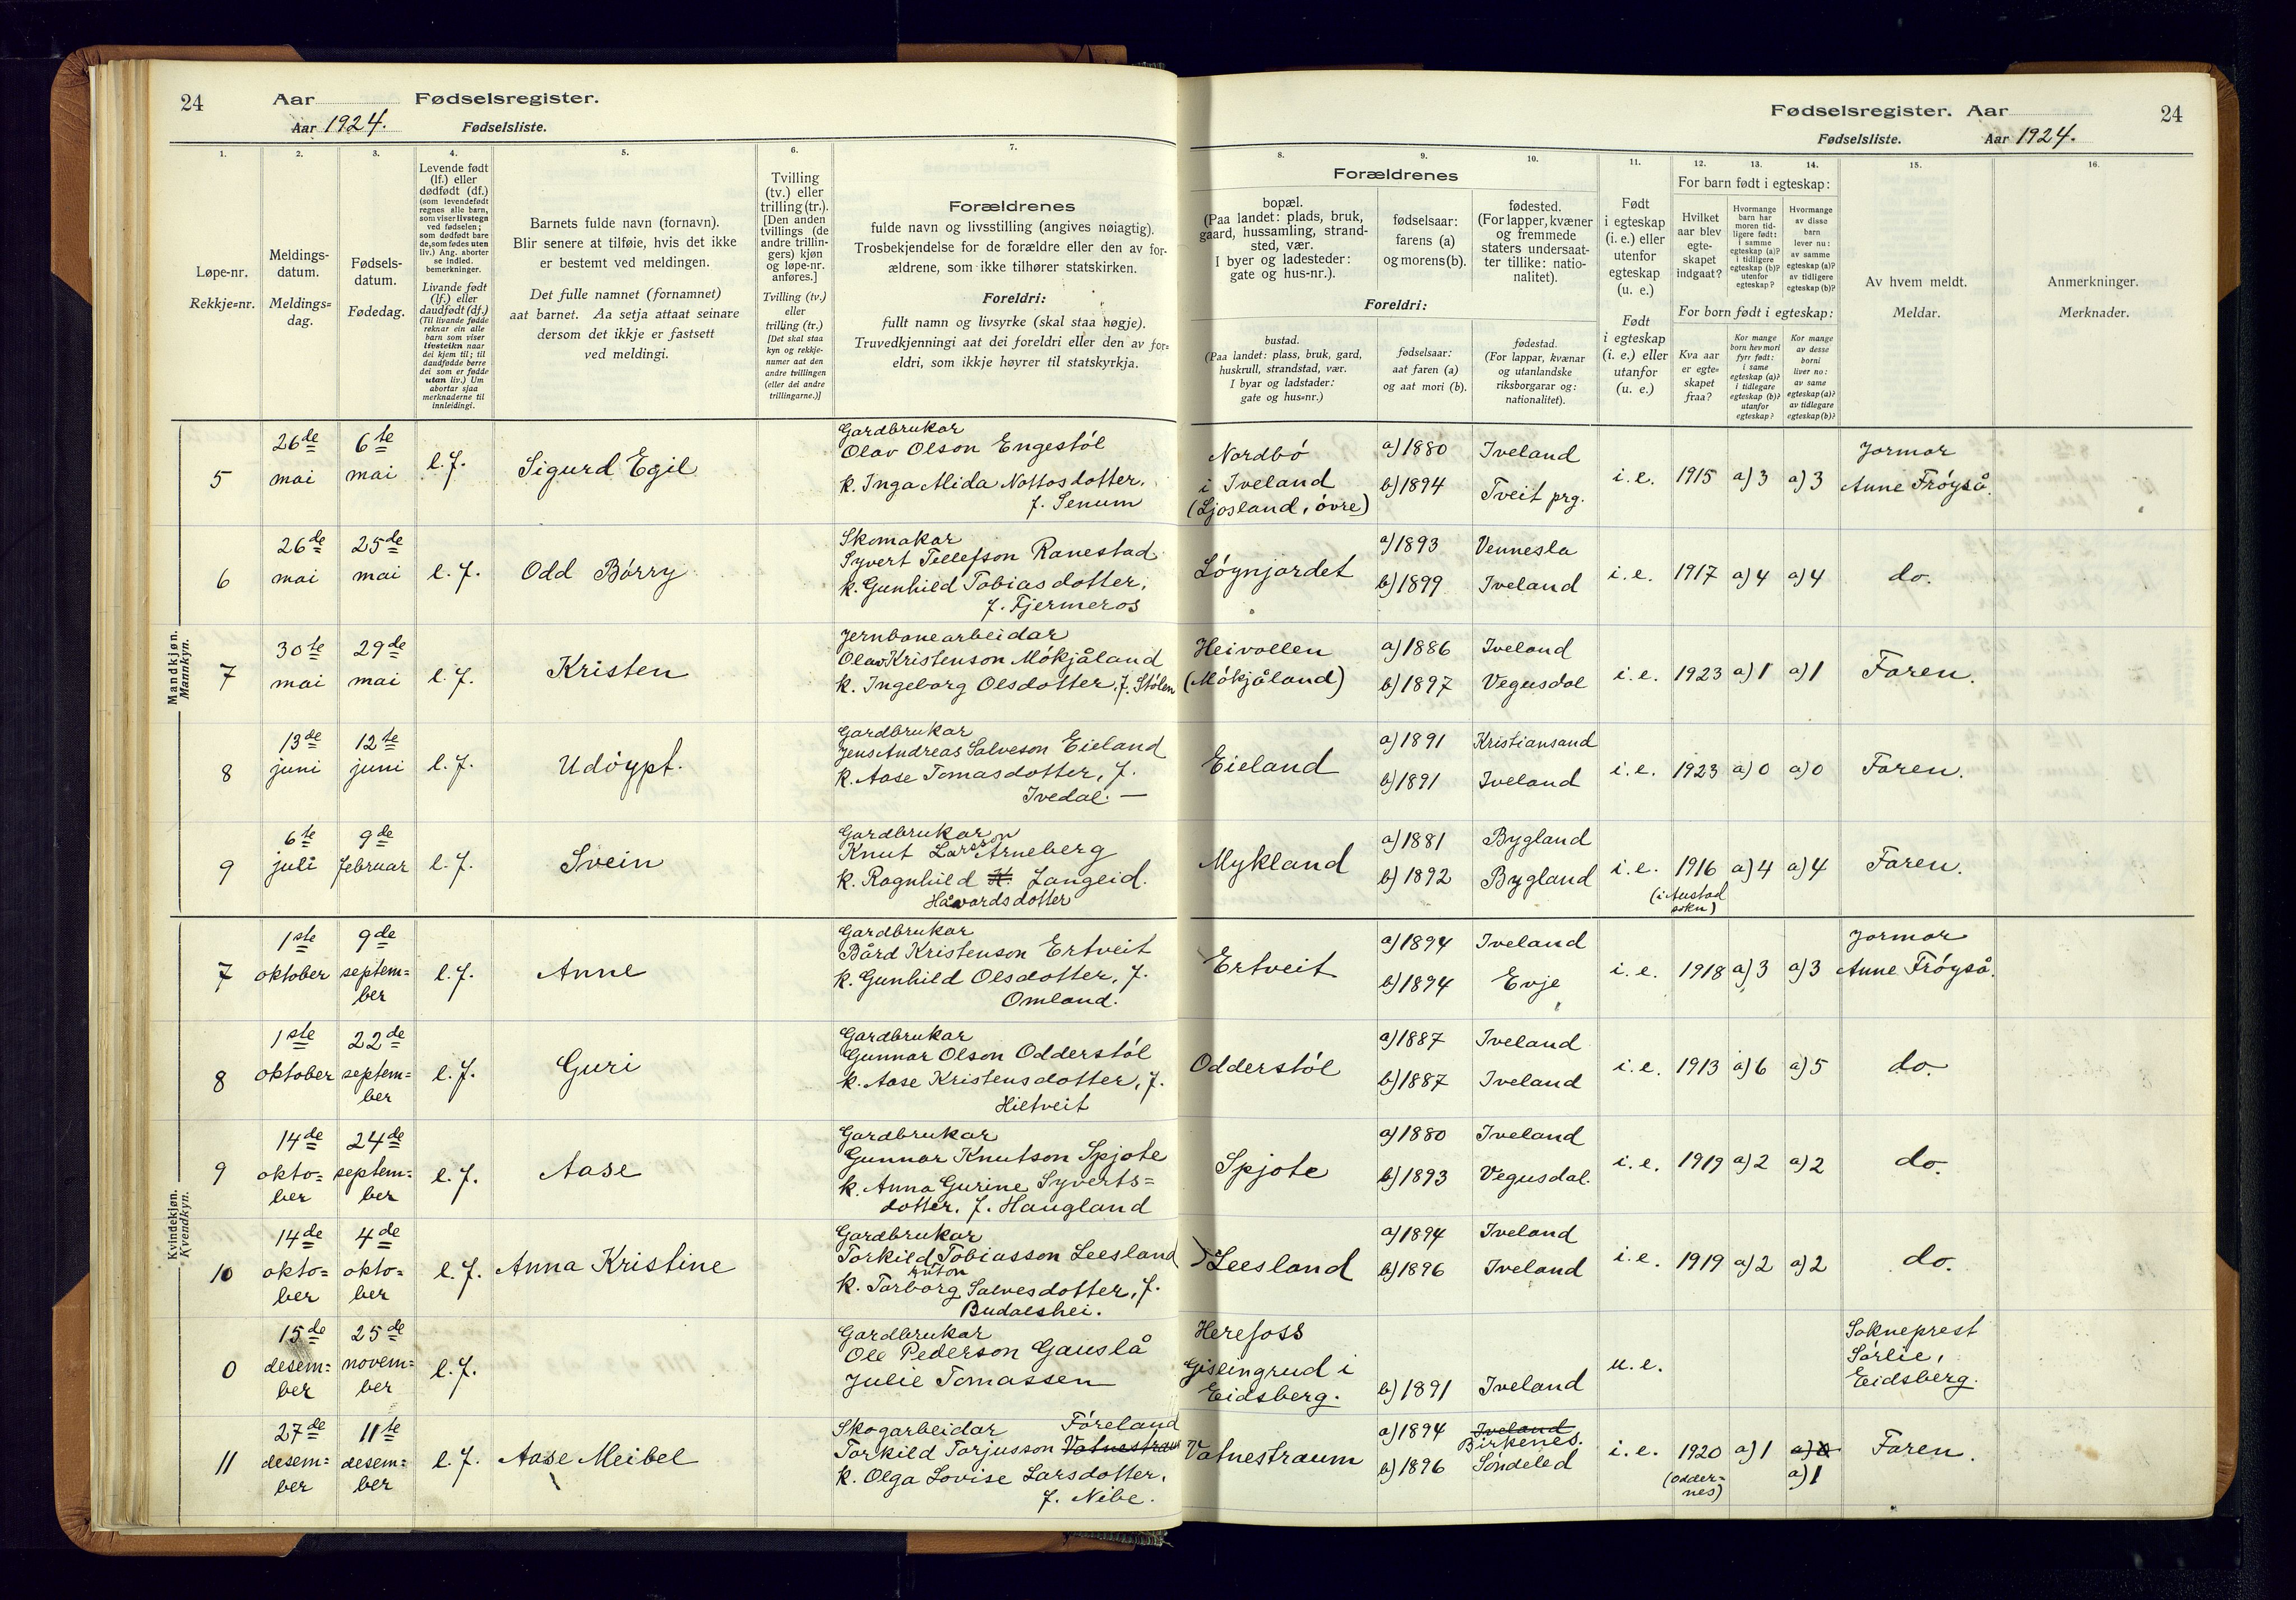 24
Aar
Fødselsregister.
Aar 1924.
Fødselsliste.
1.
2.
3.
4.
5.
6.
7.
Løpe-nr.
Rekkje-nr.
Meldings-
datum.
Meldings-
dag.
Fødsels-
datum.
Fødedag.
Levende født
(lf.) eller
dødfødt (df.)
(som levendefødt
regnes alle barn,
som viser livstegn
ved fødselen;
som dødfødt bare
de, som fødes uten
liv.) Ang. aborter
se indled.
bemerkninger.
Livande født
(lf.) eller
daudfødt (df.)
(Til livande fødde
reknar ein alle
barn som viser
livsteikn naar
dei kjem til; til
daudfødde berre
dei som er fødde
utan liv.) Um
abortar sjaa
merknaderne til
innleidingi.
Barnets fulde navn (fornavn).
Blir senere at tilføie, hvis det ikke
er bestemt ved meldingen.
Det fulle namnet (fornamnet)
aat barnet. Aa setja attaat seinare
dersom det ikkje er fastsett
ved meldingi.
Tvilling
(tv.) eller
trilling (tr.).
[Den anden
tvillings (de
andre trillin-
gers) kjøn
og løpe-nr.
anføres.]
Tvilling (tv.)
eller
trilling (tr.)
[Det skal staa
kyn og rekkje-
numer aat den
andre tvillingen
(eller dei andre
trillingarne.)]
Forældrenes
fulde navn og livsstilling (angives nøiagtig).
Trosbekjendelse for de forældre eller den av for-
ældrene, som ikke tilhører statskirken.
Foreldri:
fullt namn og livsyrke (skal staa nøgje).
Truvedkjenningi aat dei foreldri eller den av for-
eldri, som ikkje høyrer til statskyrkja.
Fødselsregister. Aar
24
Fødselsliste.
Aar 1924.
8.
9.
10.
11.
12.
13.
14.
15.
16.
Forældrenes
bopæl.
(Paa landet: plads, bruk,
gaard, hussamling, strand-
sted, vær.
I byer og ladesteder:
gate og hus-nr.).
fødselsaar:
farens (a)
og morens (b).
fødested.
(For lapper, kvæner
og fremmede
staters undersaat-
ter tillike: natio-
nalitet).
Foreldri:
bustad.
(Paa landet: plass, bruk, gard,
huskrull, strandstad, vær.
I byar og ladstader:
gate og hus-nr.)
fødselsaar:
aat faren (a)
og aat mori (b).
fødestad.
(For lappar, kvænar
og utanlandske
riksborgarar og:
nationalitet).
Født
i egteskap
(i. e.) eller
utenfor
egteskap
(u. e.)
Født
i egteskap
(i. e.) eller
utanfor
(u. e.)
For barn født i egteskap:
Hvilket
aar blev
egte-
skapet
indgaat?
Hvormange
barn har
moren tid-
ligere født:
i samme
egteskap (a)?
i tidligere
egteskap (b)?
utenfor
egteskap?
Hvormange
av disse
barn
lever nu:
av samme
egteskap (a)?
av tidligere
egteskap (b)?
For born født i egteskap:
Kva aar
er egte-
skapet
fraa?
Kor mange
born hev mori
fyrr født:
i same
egteskap (a)?
i tidlegare
egteskap (b)?
utanfor
egteskap?
Kor mange
av desse
borni
liver no:
av same
egteskap (a)?
av tidlegare
egteskap (b)?
Av hvem meldt.
Meldar.
Anmerkninger.
Merknader.
Mandkjøn.
Mannkyn.
5
26de mai
6te mai
l.f.
Sigurd Egil
Gardbrukar
Olav Olson Engestøl
k. Inga Alida Nottosdotter,
f. Senum
Nordbø
i Iveland
(Ljosland, øvre)
a) 1880
b) 1894
Iveland
Tveit prg.
i. e.
1915
a) 3
a) 3
Jormor
Anne Frøyså.
6
26de mai
25de mai
l.f.
Odd Børry
Skomakar
Syvert Tellefson Ranestad
k. Gunhild Tobiasdotter,
f. Fjermeros
Løgnjordet
a) 1893
b) 1899
Vennesla
Iveland
i. e.
1917
a) 4
a) 4
do.
7
30te mai
29de mai
l.f.
Kristen
Jernbanearbeidar
Olav Kristenson Møkjåland
k. Ingeborg Olsdotter, f. Stølen
Heivollen
(Møkjåland)
a) 1886
b) 1897
Iveland
Vegusdal
i. e.
1923
a) 1
a) 1
Faren.
8
13de juni
12te juni
l.f.
Udøypt.
Gardbrukar
Jens Andreas Salveson Eieland
k. Aase Tomasdotter, f.
Ivedal. —
Eieland
a) 1891
b) 1891
Kristiansand
Iveland
i. e.
1923
a) 0
a) 0
Faren.
9
6te juli
9de februar
l.f.
Svein
Gardbrukar
Knut Larsson Arneberg
k. Ragnhild H. Langeid.
Håvardsdotter
Mykland
a) 1881
b) 1892
Bygland
Bygland
i. e.
1916
(i Austad
sokn)
a) 4
a) 4
Faren.
Kvindekjøn.
Kvendkyn.
7
1ste oktober
9de septem=
ber
l.f.
Anne
Gardbrukar
Bård Kristenson Ertveit
k. Gunhild Olsdotter, f.
Omland.
Ertveit
a) 1894
b) 1894
Iveland
Evje
i. e.
1918
a) 3
a) 3
Jormor
Anne Frøyså.
8
1ste oktober
22de septem=
ber
l.f.
Guri
Gardbrukar
Gunnar Olson Odderstøl
k. Aase Kristensdotter, f.
Hiltveit
Odderstøl
a) 1887
b) 1887
Iveland
Iveland
i. e.
1913
a) 6
a) 5
do.
9
14de okto=
ber
24de septem=
ber
l.f.
Aase
Gardbrukar
Gunnar Knutson Spjote
k. Anna Gurine Syverts=
dotter, f. Haugland
Spjote
a) 1880
b) 1893
Iveland
Vegusdal.
i. e.
1919
a) 2
a) 2
do.
10
14de okto=
ber
4de okto=
ber
l.f.
Anna Kristine
Gardbrukar
Torkild Tobiasson Leesland
k. Torborg Salvesdotter, f.
Budalshei.
Leesland
a) 1894
b) 1896
Iveland
Iveland
i. e.
1919
a) 2
a) 2
do.
0
15de desem=
ber
25de novem=
ber
l.f.
Gardbrukar
Ole Pederson Gauslå
Julie Tomassen
Herefoss
Gislingrud i
Eidsberg.
b) 1891
Iveland
u. e.
Sokneprest
Sørlie,
Eidsberg.
11
27de desem=
ber
11te desem=
ber
l.f.
Aase Meibel
Skogarbeidar Føreland
Torkild Torjusson Vatnestraum
k. Olga Lovise Larsdotter,
f. Nibe.
Vatnestraum
a) 1894
b) 1896
Iveland
Birkenes.
Søndeled
i. e.
1920
(Odder=
nes)
a) 1
a) 0
a) 1
Faren.